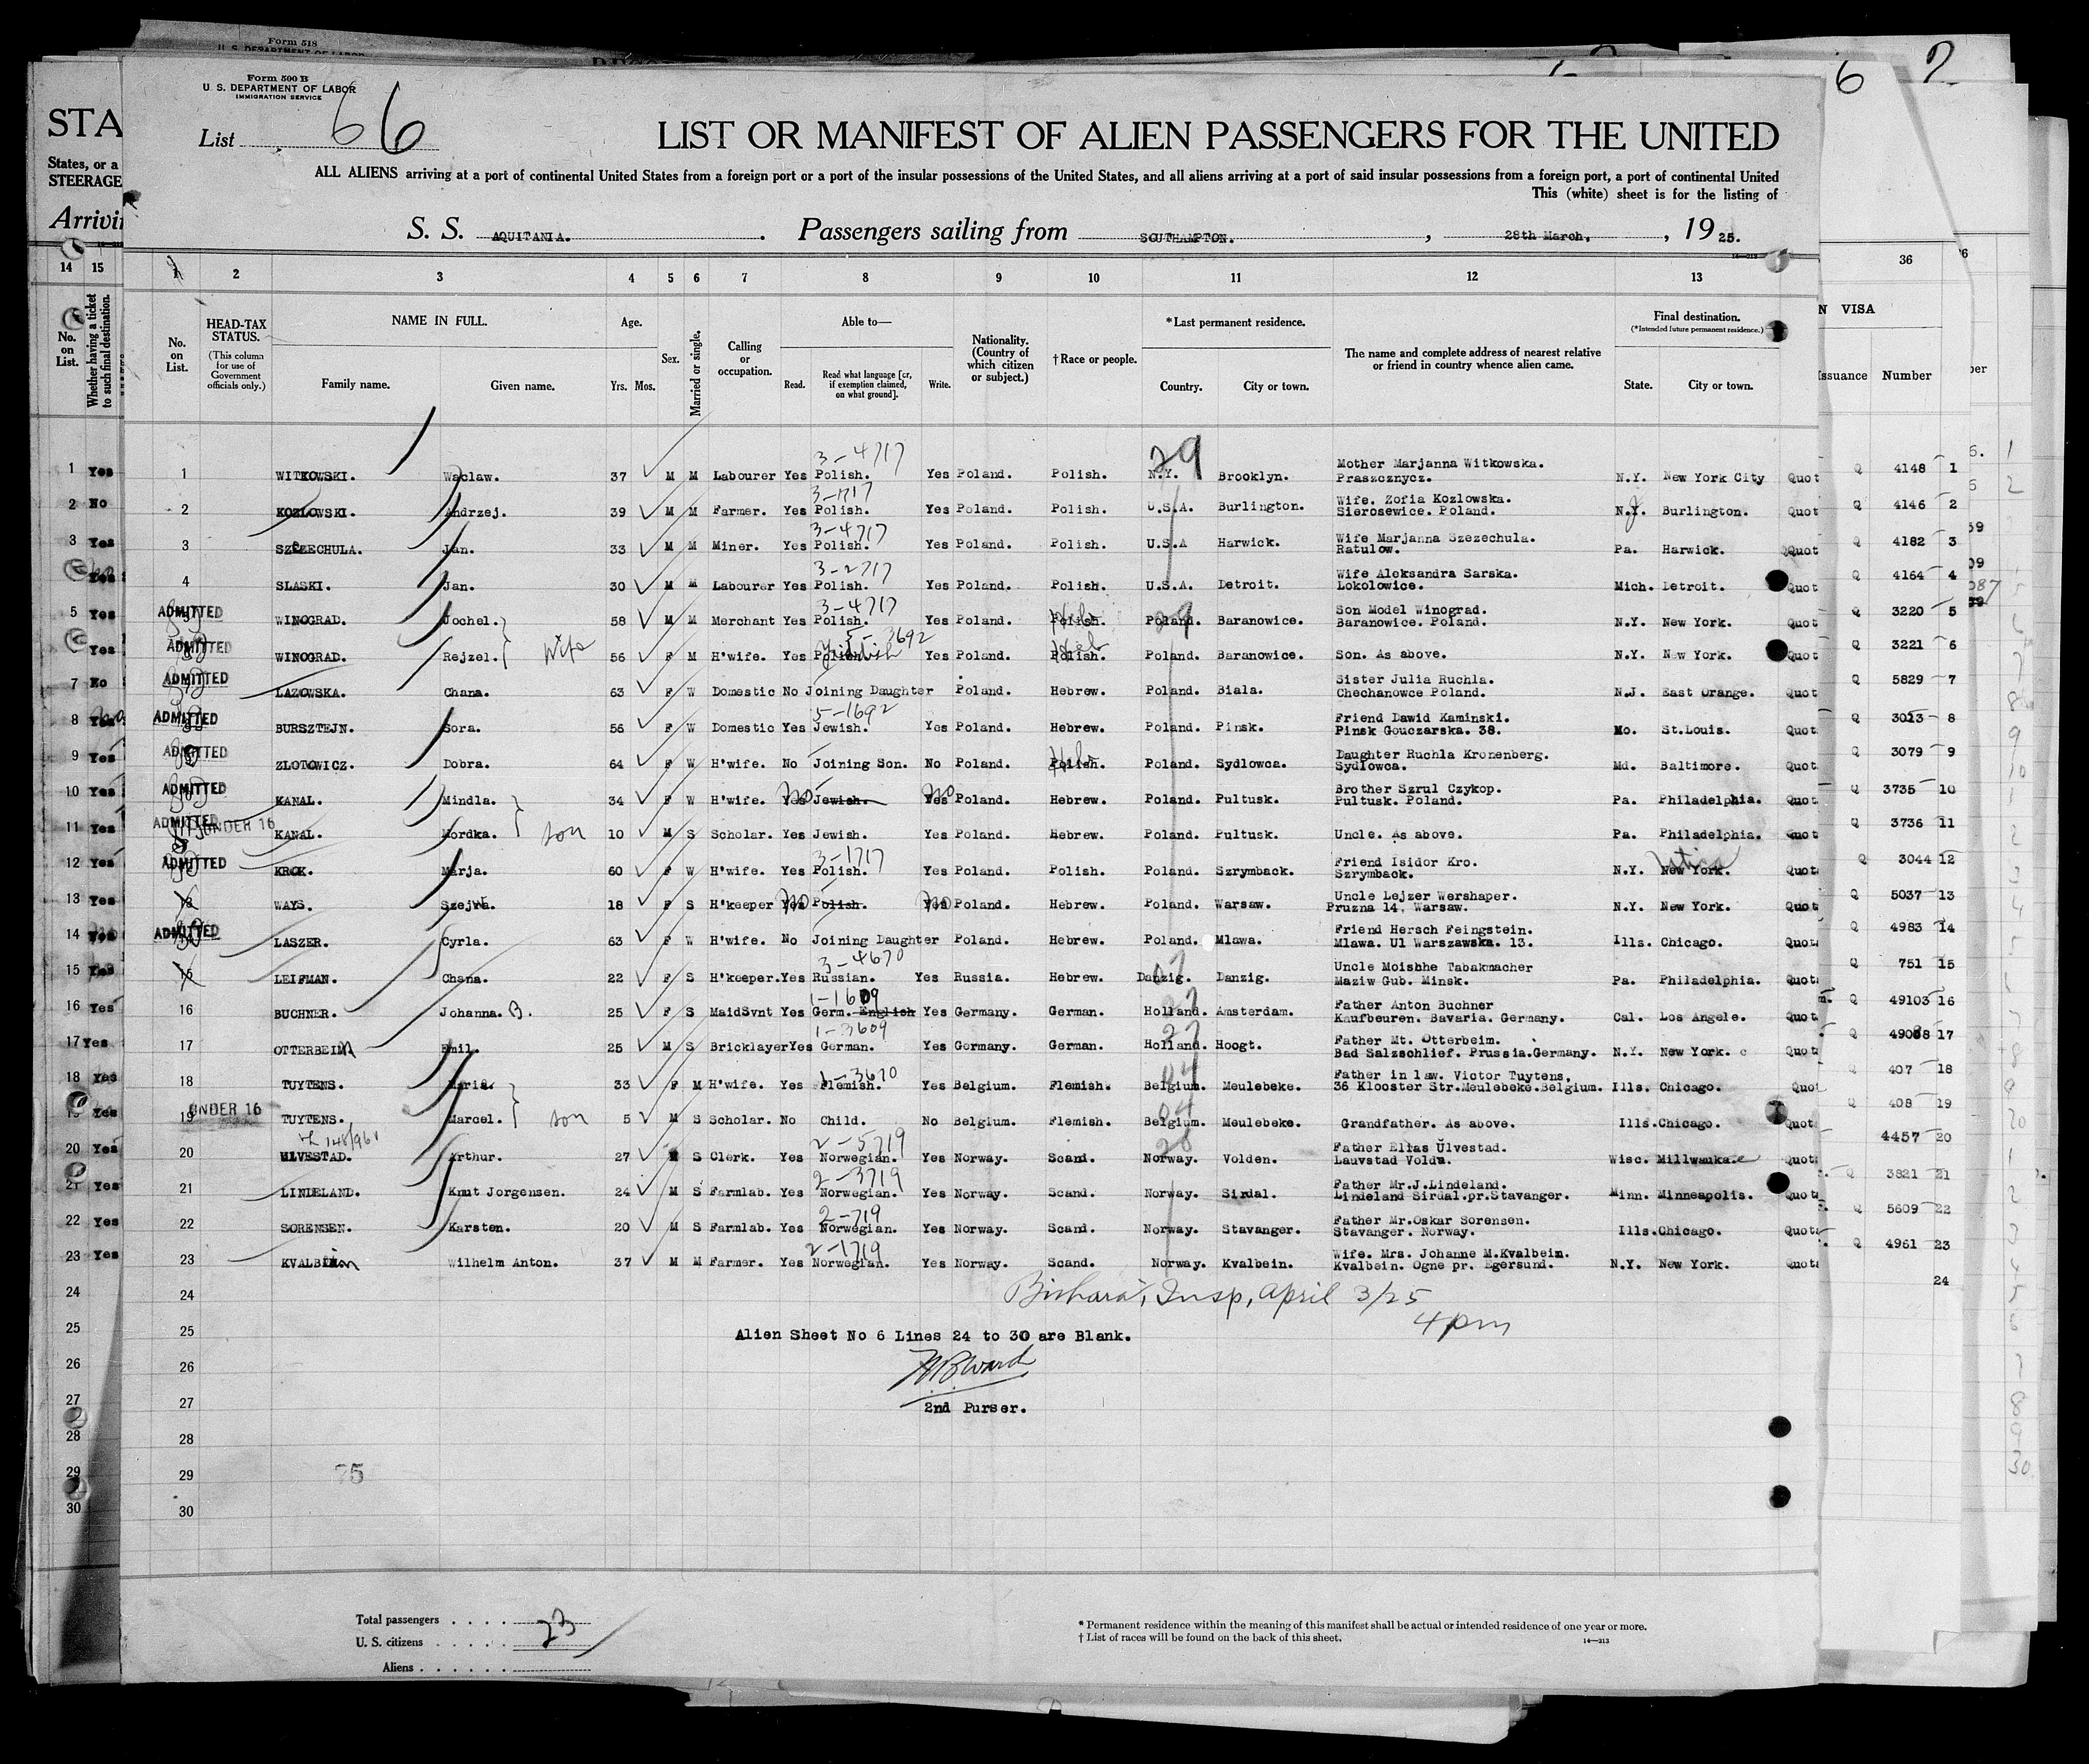 Form 518
U. S. DEPARTMENT OF LABOR
Form 500 B
U. S. DEPARTMENT OF LABOR
IMMIGRATION SERVICE
List 66
6 2
STA
LIST OR MANIFEST OF ALIEN PASSENGERS FOR THE UNITED
States, or a
STEERAGE
ALL ALIENS arriving at a port of continental United States from a foreign port or a port of the insular possessions of the United States, and all aliens arriving at a port of said insular possessions from a foreign port, a port of continental United
This (white) sheet is for the listing of
Arrivi
S. S. AQUITANIA. Passengers sailing from SOUTHAMPTON. , 28th March, , 1925.
14 15 1 2 3 4 5 6 7 8 9 10 11 12 13 36
No. on List.
Whether having a ticket to such final destination.
No. on List.
HEAD-TAX STATUS.
(This column for use of Government officials only.)
NAME IN FULL.
Family name. Given name.
Age.
Yrs. Mos.
Sex.
Married or single.
Calling or occupation.
Able to—
Read. Read what language [or, if exemption claimed, on what ground]. Write.
Nationality. (Country of which citizen or subject.)
†Race or people.
*Last permanent residence.
Country. City or town.
The name and complete address of nearest relative or friend in country whence alien came.
Final destination.
(*Intended future permanent residence.)
State. City or town.
N VISA
Issuance Number
3-4717 29 Mother Marjanna Witkowska.
1 Yes 1 WITKOWSKI. Waclaw. 37 M M Labourer Yes Polish. Yes Poland. Polish. N.Y. Brooklyn. Praszcznycz. N.Y. New York City Quot Q 4148 1
3-1717 Wife. Zofia Kozlowska.
2 No 2 KOZLOWSKI. Andrzej. 39 M M Farmer. Yes Polish. Yes Poland. Polish. U.S.A. Burlington. Sierosewice. Poland. N.J. Burlington. Quot Q 4146 2
3-4717 Wife Marjanna Szezechula.
3 Yes 3 SZCZECHULA. Jan. 33 M M Miner. Yes Polish. Yes Poland. Polish. U.S.A Harwick. Ratulow. Pa. Harwick. Quot Q 4182 3
3-2717 Wife Aleksandra Sarska.
Yes 4 SLASKI. Jan. 30 M M Labourer Yes Polish. Yes Poland. Polish. U.S.A. Detroit. Lokolowice. Mich. Detroit. Quot Q 4164 4
ADMITTED 3-4717 Heb Son Model Winograd.
5 Yes 5 WINOGRAD. Jochel. 58 M M Merchant Yes Polish. Yes Poland. Polish. Poland. Baranowice. Baranowice. Poland. N.Y. New York. Quot Q 3220 5
ADMITTED Wife 5-3692 Yiddish Heb
Yes WINOGRAD. Rejzel. 56 F M H'wife. Yes Polish Yes Poland. Polish. Poland. Baranowice. Son. As above. N.Y. New York. Quot Q 3221 6
ADMITTED Sister Julia Ruchla.
7 No LAZOWSKA. Chana. 63 F W Domestic No Joining Daughter Poland. Hebrew. Poland. Biala. Chechanowce Poland. N.J. East Orange. Quot Q 5829 7
ADMITTED 5-1692 Friend Dawid Kaminski.
8 Yes BURSZTEJN. Sora. 56 F W Domestic Yes Jewish. Yes Poland. Hebrew. Poland. Pinsk. Pinsk Gouczarska. 38. Mo. St.Louis. Quot Q 3023 8
ADMITTED Heb Daughter Ruchla Kronenberg.
9 Yes 9 ZLOTOWICZ. Dobra. 64 F W H'wife. No Joining Son. No Poland. Polish. Poland. Sydlowca. Sydlowca. Md. Baltimore. Quot Q 3079 9
ADMITTED No No Brother Szrul Czykop.
10 Yes KANAL. Mindla. 34 F W H'wife. Yes Jewish. Yes Poland. Hebrew. Poland. Pultusk. Pultusk. Poland. Pa. Philadelphia. Quot Q 3735 10
ADMITTED UNDER 16
11 Yes KANAL. Mordka. son 10 M S Scholar. Yes Jewish. Yes Poland. Hebrew. Poland. Pultusk. Uncle. As above. Pa. Philadelphia. Quot Q 3736 11
ADMITTED 3-1717 Friend Isidor Kro. Utica
12 Yes KROK. Marja. 60 F W H'wife. Yes Polish. Yes Poland. Polish. Poland. Szrymback. Szrymback. N.Y. New York. Quot Q 3044 12
No No Uncle Lejzer Wershaper.
13 Yes 13 WAYS. Szejwa. 18 F S H'keeper Yes Polish. Yes Poland. Hebrew. Poland. Warsaw. Pruzna 14, Warsaw. N.Y. New York. Quot Q 5037 13
ADMITTED Friend Hersch Feingstein.
14 Yes LASZER. Cyrla. 63 F W H'wife. No Joining Daughter Poland. Hebrew. Poland. Mlawa. Mlawa. Ul Warszawska. 13. Ills. Chicago. Quot Q 4983 14
3-4670 Uncle Moishhe Tabakmacher
15 Yes 15 LEIFMAN. Chana. 22 F S H'keeper. Yes Russian. Yes Russia. Hebrew. Danzig. Danzig. Maziw Gub. Minsk. Pa. Philadelphia. Quot Q 751 15
1-1609 Father Anton Buchner
16 Yes 16 BUCHNER. Johanna. B. 25 F S MaidSvnt Yes Germ. English Yes Germany. German. Holland. Amsterdam. Kaufbeuren. Bavaria. Germany. Cal. Los Angele. Quot Q 49103 16
1-3609 27 Father Mt. Otterbeim.
17 Yes 17 OTTERBEIN Emil. 25 M S Bricklayer Yes German. Yes Germany. German. Holland. Hoogt. Bad Salzschlief. Prussia.Germany. N.Y. New York. Quot Q 49088 17
1-3670 04 Father in law. Victor Tuytens,
18 Yes 18 TUYTENS. Maria. 33 F M H'wife. Yes Flemish. Yes Belgium. Flemish. Belgium. Meulebeke. 36 Klooster Str.Meulebeke.Belgium. Ills. Chicago. Quot Q 407 18
UNDER 16 04
19 Yes 19 TUYTENS. Marcel. son 5 M S Scholar. No Child. No Belgium. Flemish. Belgium. Meulebeke. Grandfather. As above. Ills. Chicago. Quot Q 408 19
148/961 2-5719 28 Father Elias Ulvestad.
20 Yes 20 ULVESTAD. Arthur. 27 M S Clerk. Yes Norwegian. Yes Norway. Scand. Norway. Volden. Lauvstad Volda. Wisc. Millwaukee Quot 4457 20
2-3719 Father Mr.J.Lindeland.
21 Yes 21 LINDELAND. Knut Jorgensen. 24 M S Farmlab. Yes Norwegian. Yes Norway. Scand. Norway. Sirdal. Lindeland Sirdal.pr.Stavanger. Minn. Minneapolis. Quot Q 3821 21
2-719 Father Mr.Oskar Sorensen.
22 Yes 22 SORENSEN. Karsten. 20 M S Farmlab. Yes Norwegian. Yes Norway. Scand. Norway. Stavanger. Stavanger. Norway. Ills. Chicago. Quot Q 5609 22
2-1719 Wife. Mrs. Johanne M.Kvalbein.
23 Yes 23 KVALBEIN Wilhelm Anton. 37 M M Farmer. Yes Norwegian. Yes Norway. Scand. Norway. Kvalbein. Kvalbein. Ogne pr. Egersund. N.Y. New York. Quot Q 4961 23
24 24 Insp, April 3/25 24
4 pm
25 25 Alien Sheet No 6 Lines 24 to 30 are Blank.
26 26 Ward
27 27 2nd Purser.
28 28
29 29 75
30 30
Total passengers . . . . 23
U. S. citizens . . . . .
Aliens . . . . . .
* Permanent residence within the meaning of this manifest shall be actual or intended residence of one year or more.
† List of races will be found on the back of this sheet. 14—213